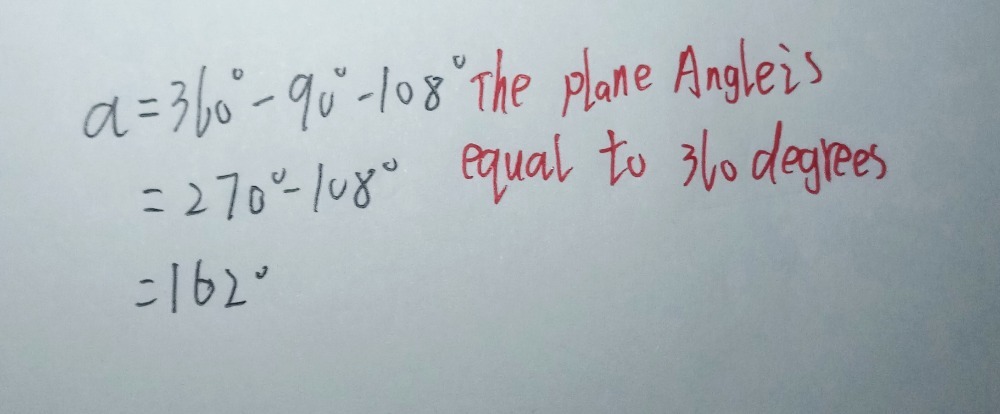 a=360°-90°-108° The plane Angle is
=270°-108° equal to 360 degrees
=162°